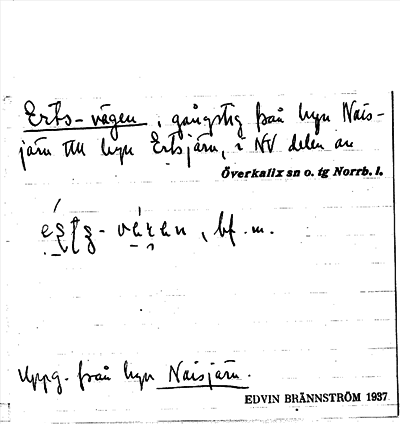 Erts-vägen, gångstig från byn Nais-
järv till byn Ertsjärv, i NV delen av
Överkalix sn o. tg Norrb. l.
bf. m.
Uppg. från byn Naisjärv.
EDVIN BRÄNNSTRÖM 1937